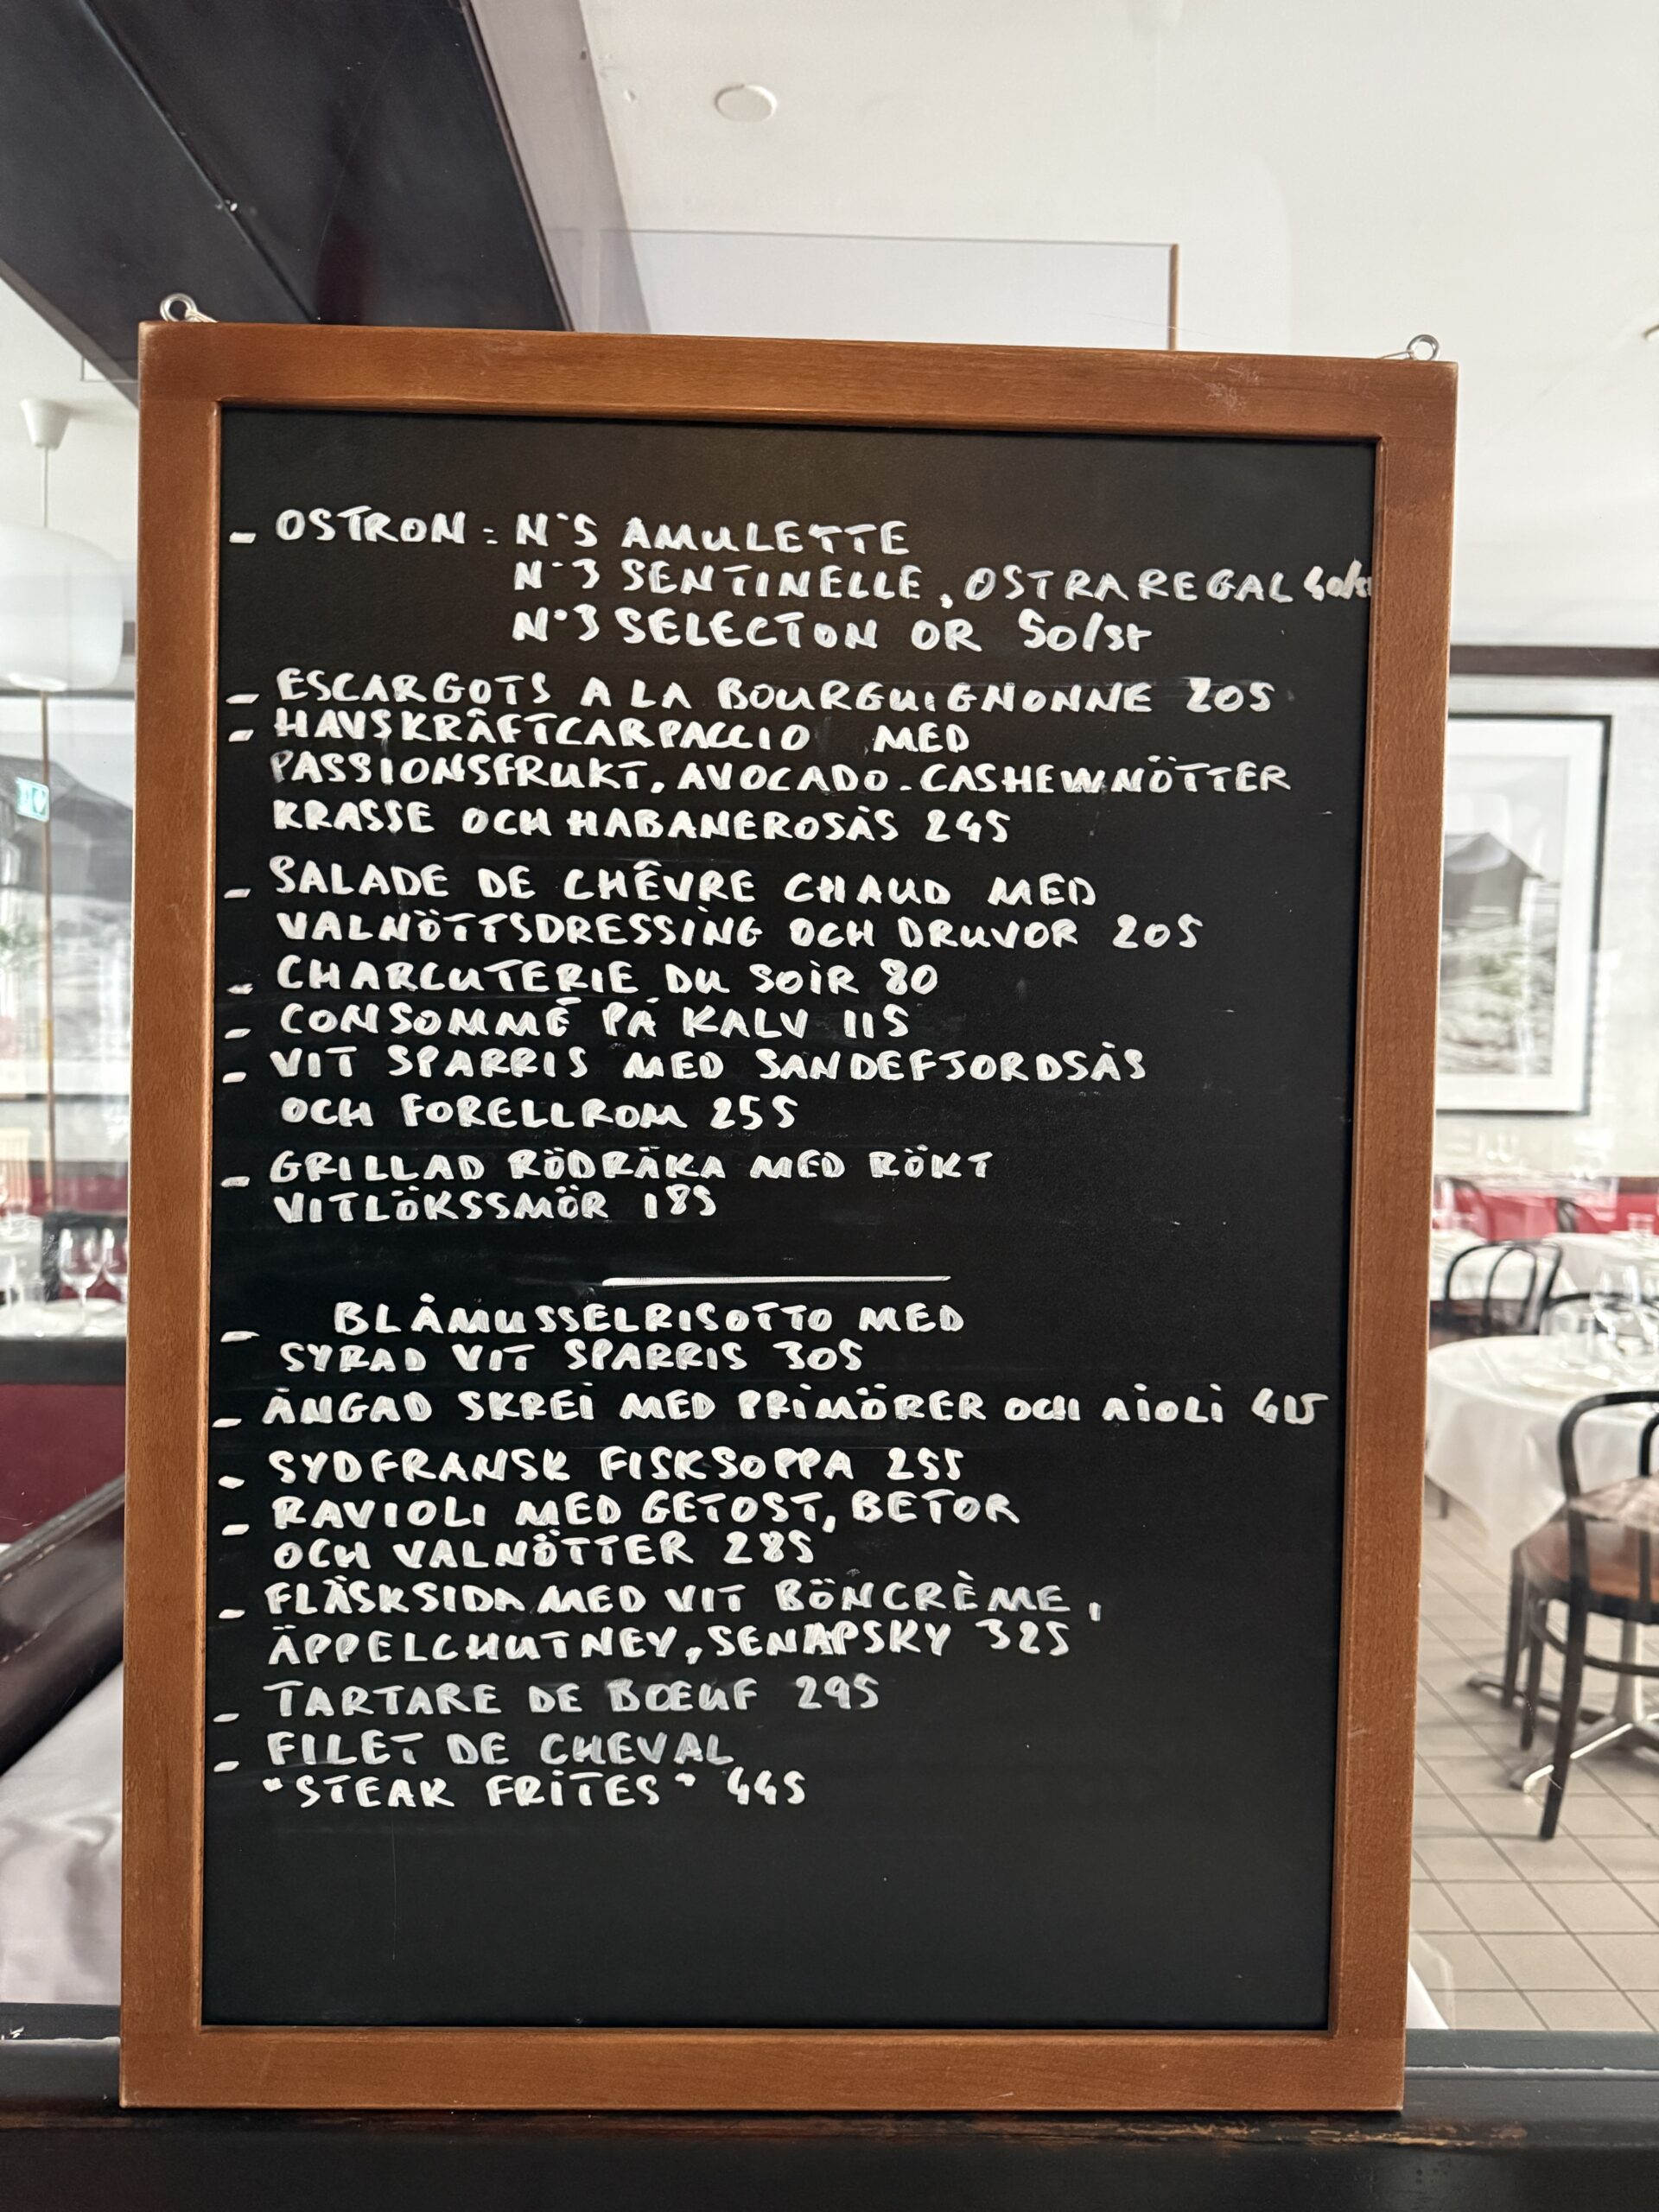 - OSTRON: N°5 AMULETTE
N°3 SENTINELLE, OSTRA REGAL 40/st
N°3 SELECTON OR 50/st
- ESCARGOTS A LA BOURGUIGNONNE 205
- HAVSKRÄFTCARPACCIO MED
PASSIONSFRUKT, AVOCADO. CASHEWNÖTTER
KRASSE OCH HABANEROSÅS 245
- SALADE DE CHÊVRE CHAUD MED
VALNÖTTSDRESSING OCH DRUVOR 205
- CHARCUTERIE DU SOIR 80
- CONSOMMÉ PÅ KALV 115
- VIT SPARRIS MED SANDEFJORDSÅS
OCH FORELLROM 255
- GRILLAD RÖDRÄKA MED RÖKT
VITLÖKSSMÖR 185
- BLÅMUSSELRISOTTO MED
SYRAD VIT SPARRIS 305
- ÅNGAD SKREI MED PRIMÖRER OCH AIOLI 415
- SYDFRANSK FISKSOPPA 255
- RAVIOLI MED GETOST, BETOR
OCH VALNÖTTER 285
- FLÄSKSIDA MED VIT BÖNCRÈME,
ÄPPELCHUTNEY, SENAPSKY 325
- TARTARE DE BŒUF 295
- FILET DE CHEVAL
"STEAK FRITES" 445